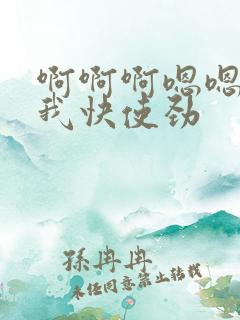 啊啊啊嗯嗯
我快使劲
孫冉冉
未经同意禁止转载